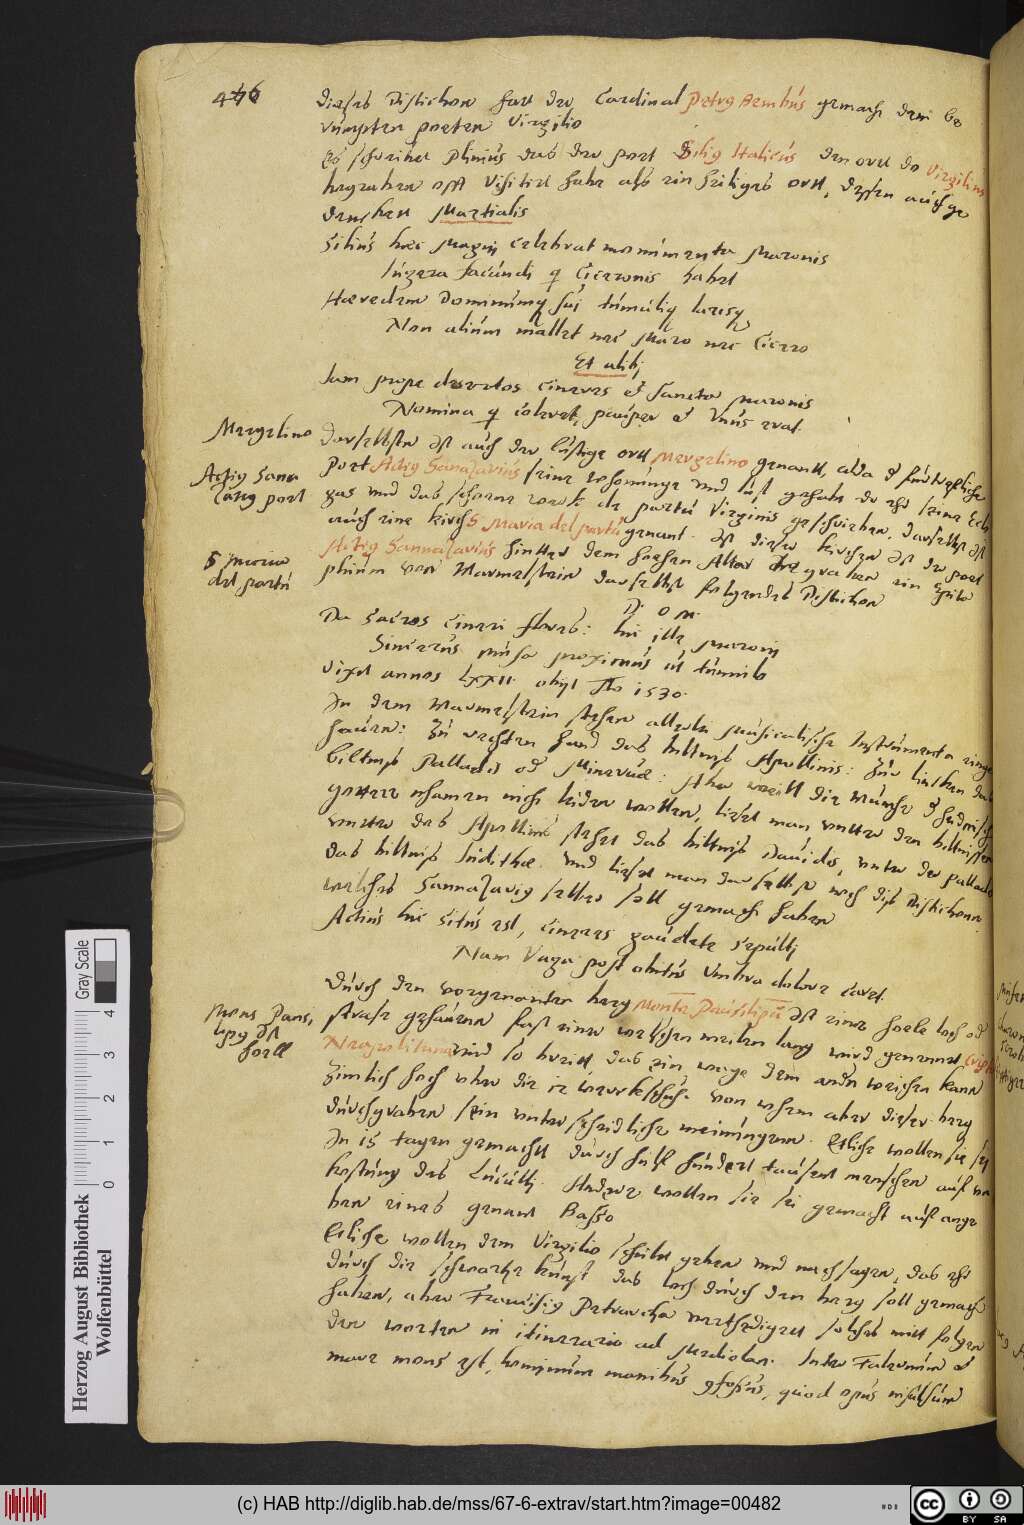 446
dieses Distichon hatt der Cardinal Petrus Bembus gemach dem be
rümpten poeten Virgilio
Es schreibet Plinius das der poet Silius Italicus den ortt do Virgilius
begraben oft visitirt habe als ein heiliges ortt, dessen auch ge
dencket Martialis
Silius haec Magni celebrat monumenta Maronis
Iugera facundi q Ciceronis habet
Haeredem Dominumq sui tumuliq larisq
Non alium mallet nec Maro nec Cicero
Et alibi
Iam prope desertos cineres et sancta Maronis
Nomina q coleret, pauper et unus erat.
Mergelino
Doselbsten ist auch der lustige ortt Mergelino genantt, alda der fürtreffliche
Actius Sana
zarius poet
Poet Actius Sanazarius seine wohnunge und lust gehabt do ehr seine Eclo
gas und das schoene werk de partu Virginis geschrieben, daselbst ist
auch eine kirch S Maria del partu genant. In dieser kirchen ist der poet
S Maria
del partu
Actius Sannazarius hintter dem hohen Altar begraben ein Epita
phium von Marmelstein daselbst folgendes Distichon
D. O. M.
Da sacros cineri flores: hic ille Maroni
Sincerus musa proximus ut tumulo
Vixit annos LXXII. obijt A͞o 1530.
In dem Marmelstein stehen allerlei Musicalische Instrumenta einge
hauen: Zu rechten hand das biltnis Apollinis: Zur lincken das
biltnis Palladis od Minervae: Aber weill die Münche d heidnischen
götter nhamen nicht leiden wollen, lieset man untter den biltnissen
untter des Apollinis stehet das biltnis Dauidis, unter der Palladis
das biltnis Iudithae. Und lieset man daselbst noch dis Distichon
welches Sannazarius selber soll gemach haben
Actius hic situs est, cineres gaudete sepulti
Nam vaga post obitus umbra dolore caret.
Mons Paus,
lypus ist
holl
Durch den vorgenanten berg Monte Pausilipum ist eine hoele loch od
strase gehauen fast einer welschen meilen lang wird genennet Crypta
Neapolitana und so breitt das ein wagen dem andern weichen kann
Zimlich hoch uber die 12 werkschuh. Von whem aber dieser berg
durchgraben sein unterschiedliche meinungen. Etliche wollen sie sei
In 15 tagen gemachtt durch hundert tausent menschen auf un
kostung des Luculli. Andere wollen sie sei gemacht auf ange
ben eines genant Basso
Etliche wollen dem Virgilio schuld geben und nachsagen, das ehr
durch die schwartze kunst das loch durch den berg soll gemach
haben, aber Franciscus Petrarcha verthediget solches mitt folgen
den worten in itinerario ad Mediolan. Inter Falernum et
mare mons est, hominum manibus confossus, quod opus insulsum
Herzog August Bibliothek
Wolfenbüttel
Gray Scale
0 1 2 3 4
(c) HAB http://diglib.hab.de/mss/67-6-extrav/start.htm?image=00482
BY SA